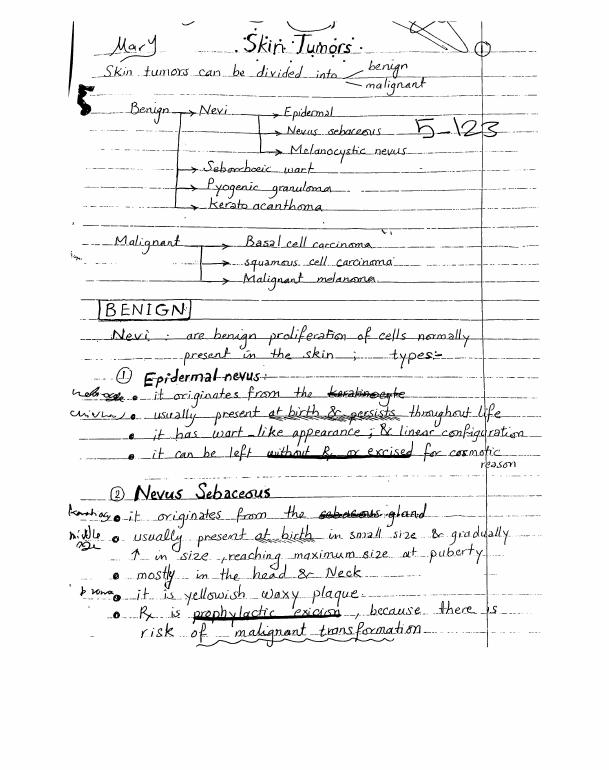 Mary
Skin Tumors
1
Skin tumors can be divided into benign
malignant
Benign → Nevi → Epidermal
→ Nevus sebaceous
5-123
→ Melanocystic nevus
→ Seborrhoeic wart
→ Pyogenic granuloma
→ Kerato acanthoma
Malignant → Basal cell carcinoma
→ squamous cell carcinoma
→ Malignant melanoma
BENIGN
Nevi : are benign proliferation of cells normally
present in the skin ; types:-
① Epidermal nevus:
• it originates from the keratinocyte
• usually present at birth & persists throughout life
• it has wart-like appearance ; & linear configuration
• it can be left without Rx or excised for cosmotic
reason
② Nevus Sebaceous
• it originates from the sebaceous gland
• usually present at birth in small size & gradually
↑ in size , reaching maximum size at puberty
• mostly in the head & Neck
• it is yellowish waxy plaque
• Rx is prophylactic exicion , because there is
risk of malignant transformation